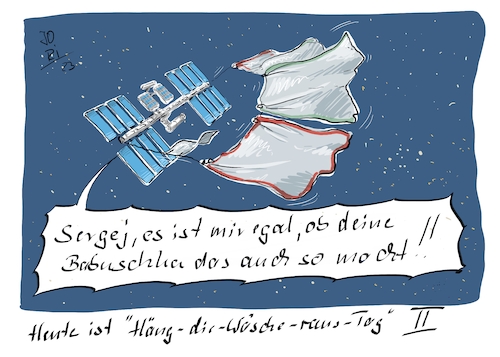 JO
21
23
Sergej, es ist mir egal, ob deine
Babuschka das auch so macht..!!
Heute ist "Häng-die-Wäsche-raus-Tag" II